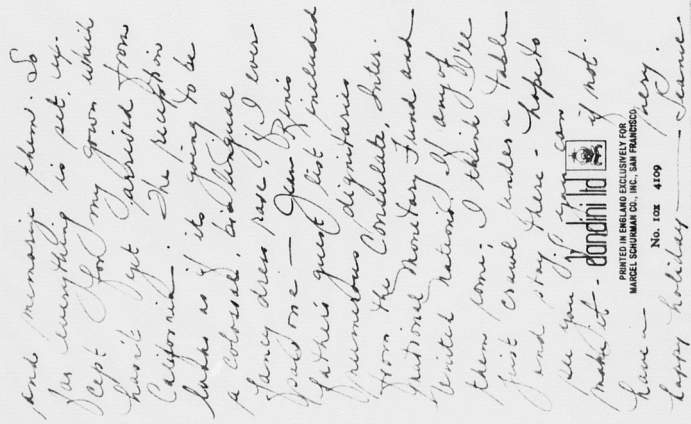 and memorize them. So
far everything is set, ex-
cept for my gown which
hasn't yet arrived from
California. The reception
looks as if its going to be
a colossal, bi-lingual
fancy dress rase if I ever
heard one — Jean
father's guest list included
numerous dignitaries
from the Consulate, Inter-
national Monetary Fund and
United nations. If any of
them come, I think I'll
just crawl under a table
and stay there - hope to
see you if you can
make it - if not.
have a very
happy holiday — Jeanie
dandini ltd
PRINTED IN ENGLAND EXCLUSIVELY FOR
MARCEL SCHURMAN CO., INC., SAN FRANCISCO
No. 10X 4109